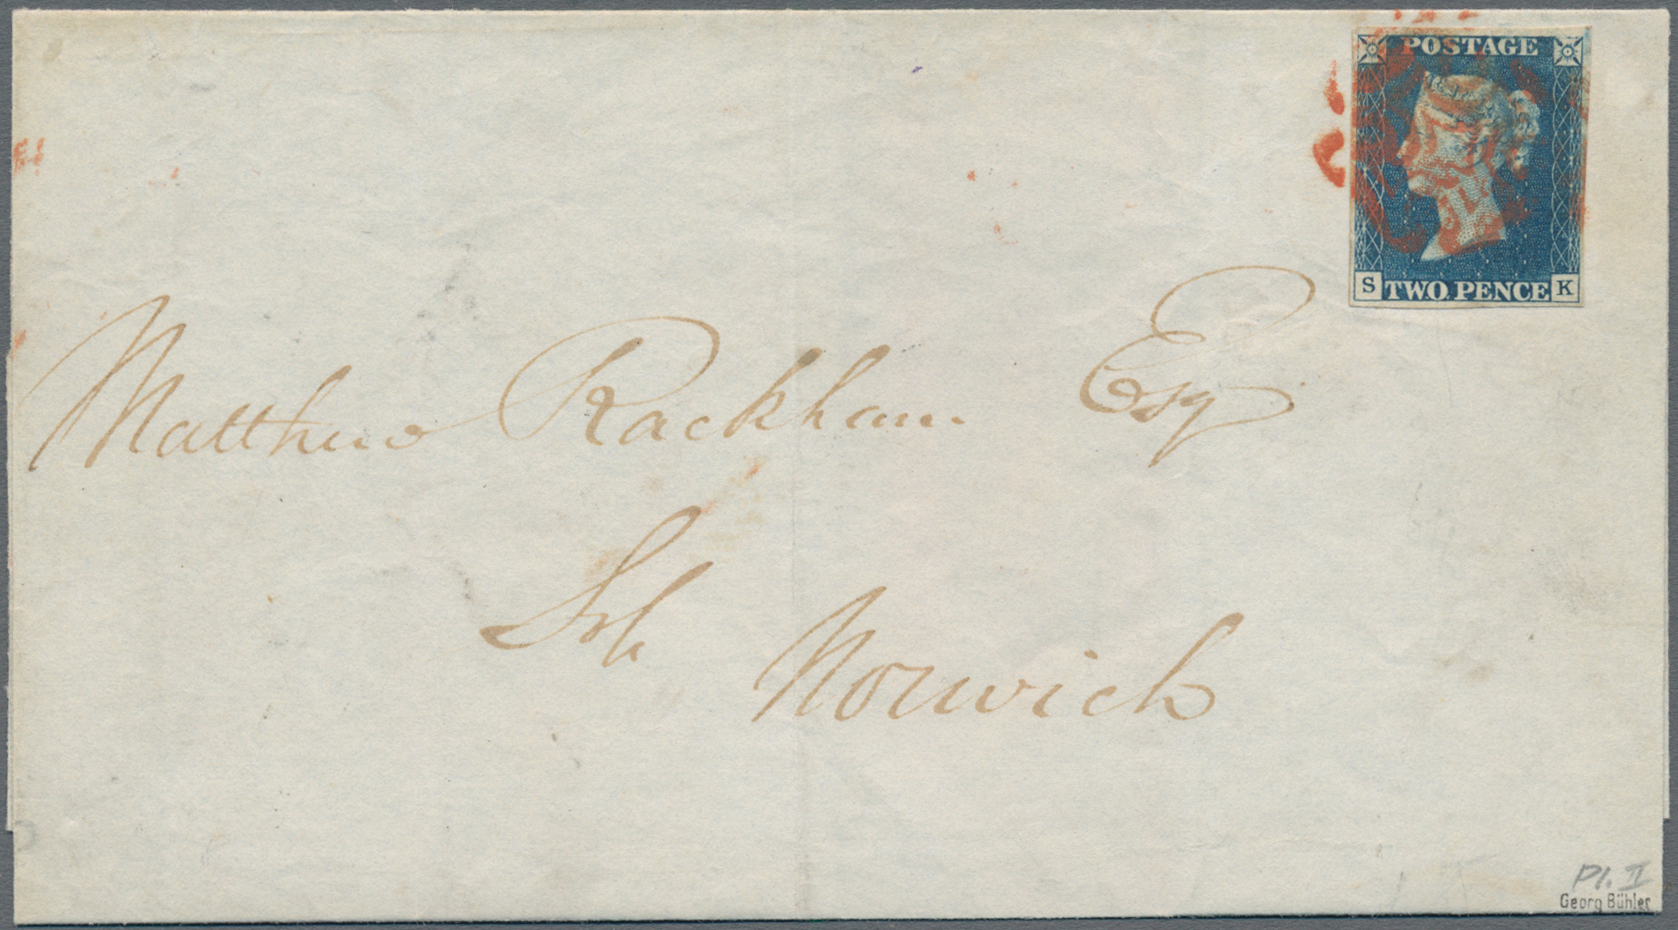 POSTAGE
S TWO PENCE K
Matthew Rackham Esq
Norwich
Pl. II
Georg Bühler